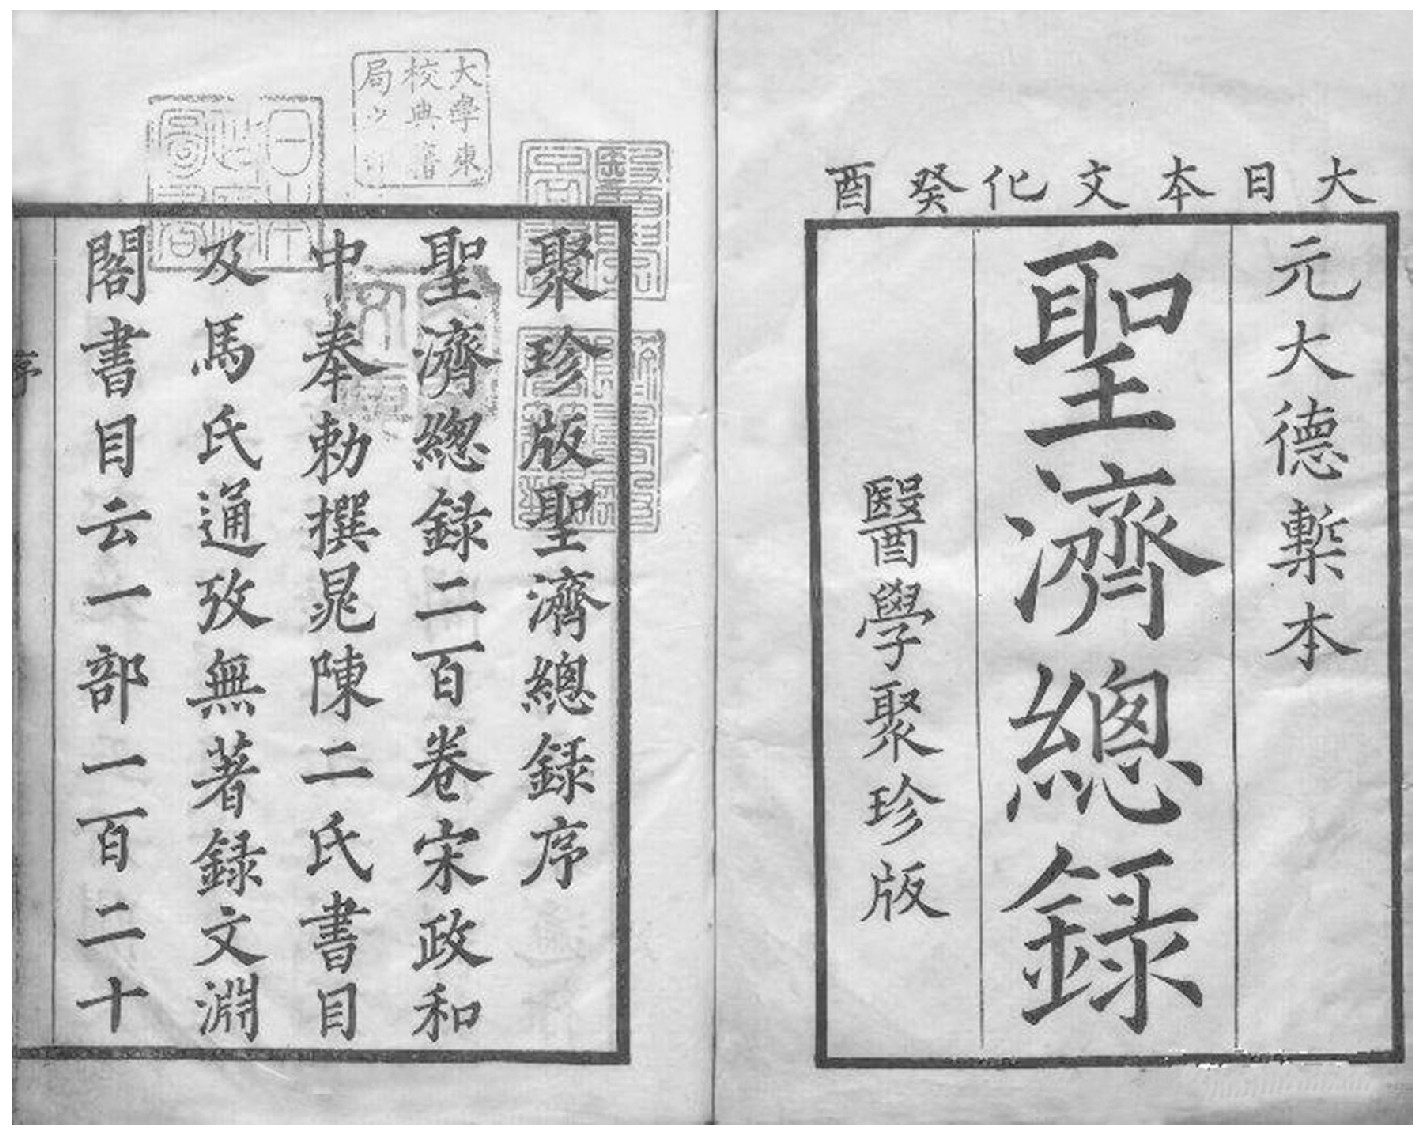 大日本文化癸酉
元大德槧本
聖濟總錄
醫學聚珍版
大學東
校典籍
局之
聚珍版聖濟總錄序
聖濟總錄二百卷宋政和
中奉勅撰晁陳二氏書目
及馬氏通攷無著錄文淵
閣書目云一部一百二十
序